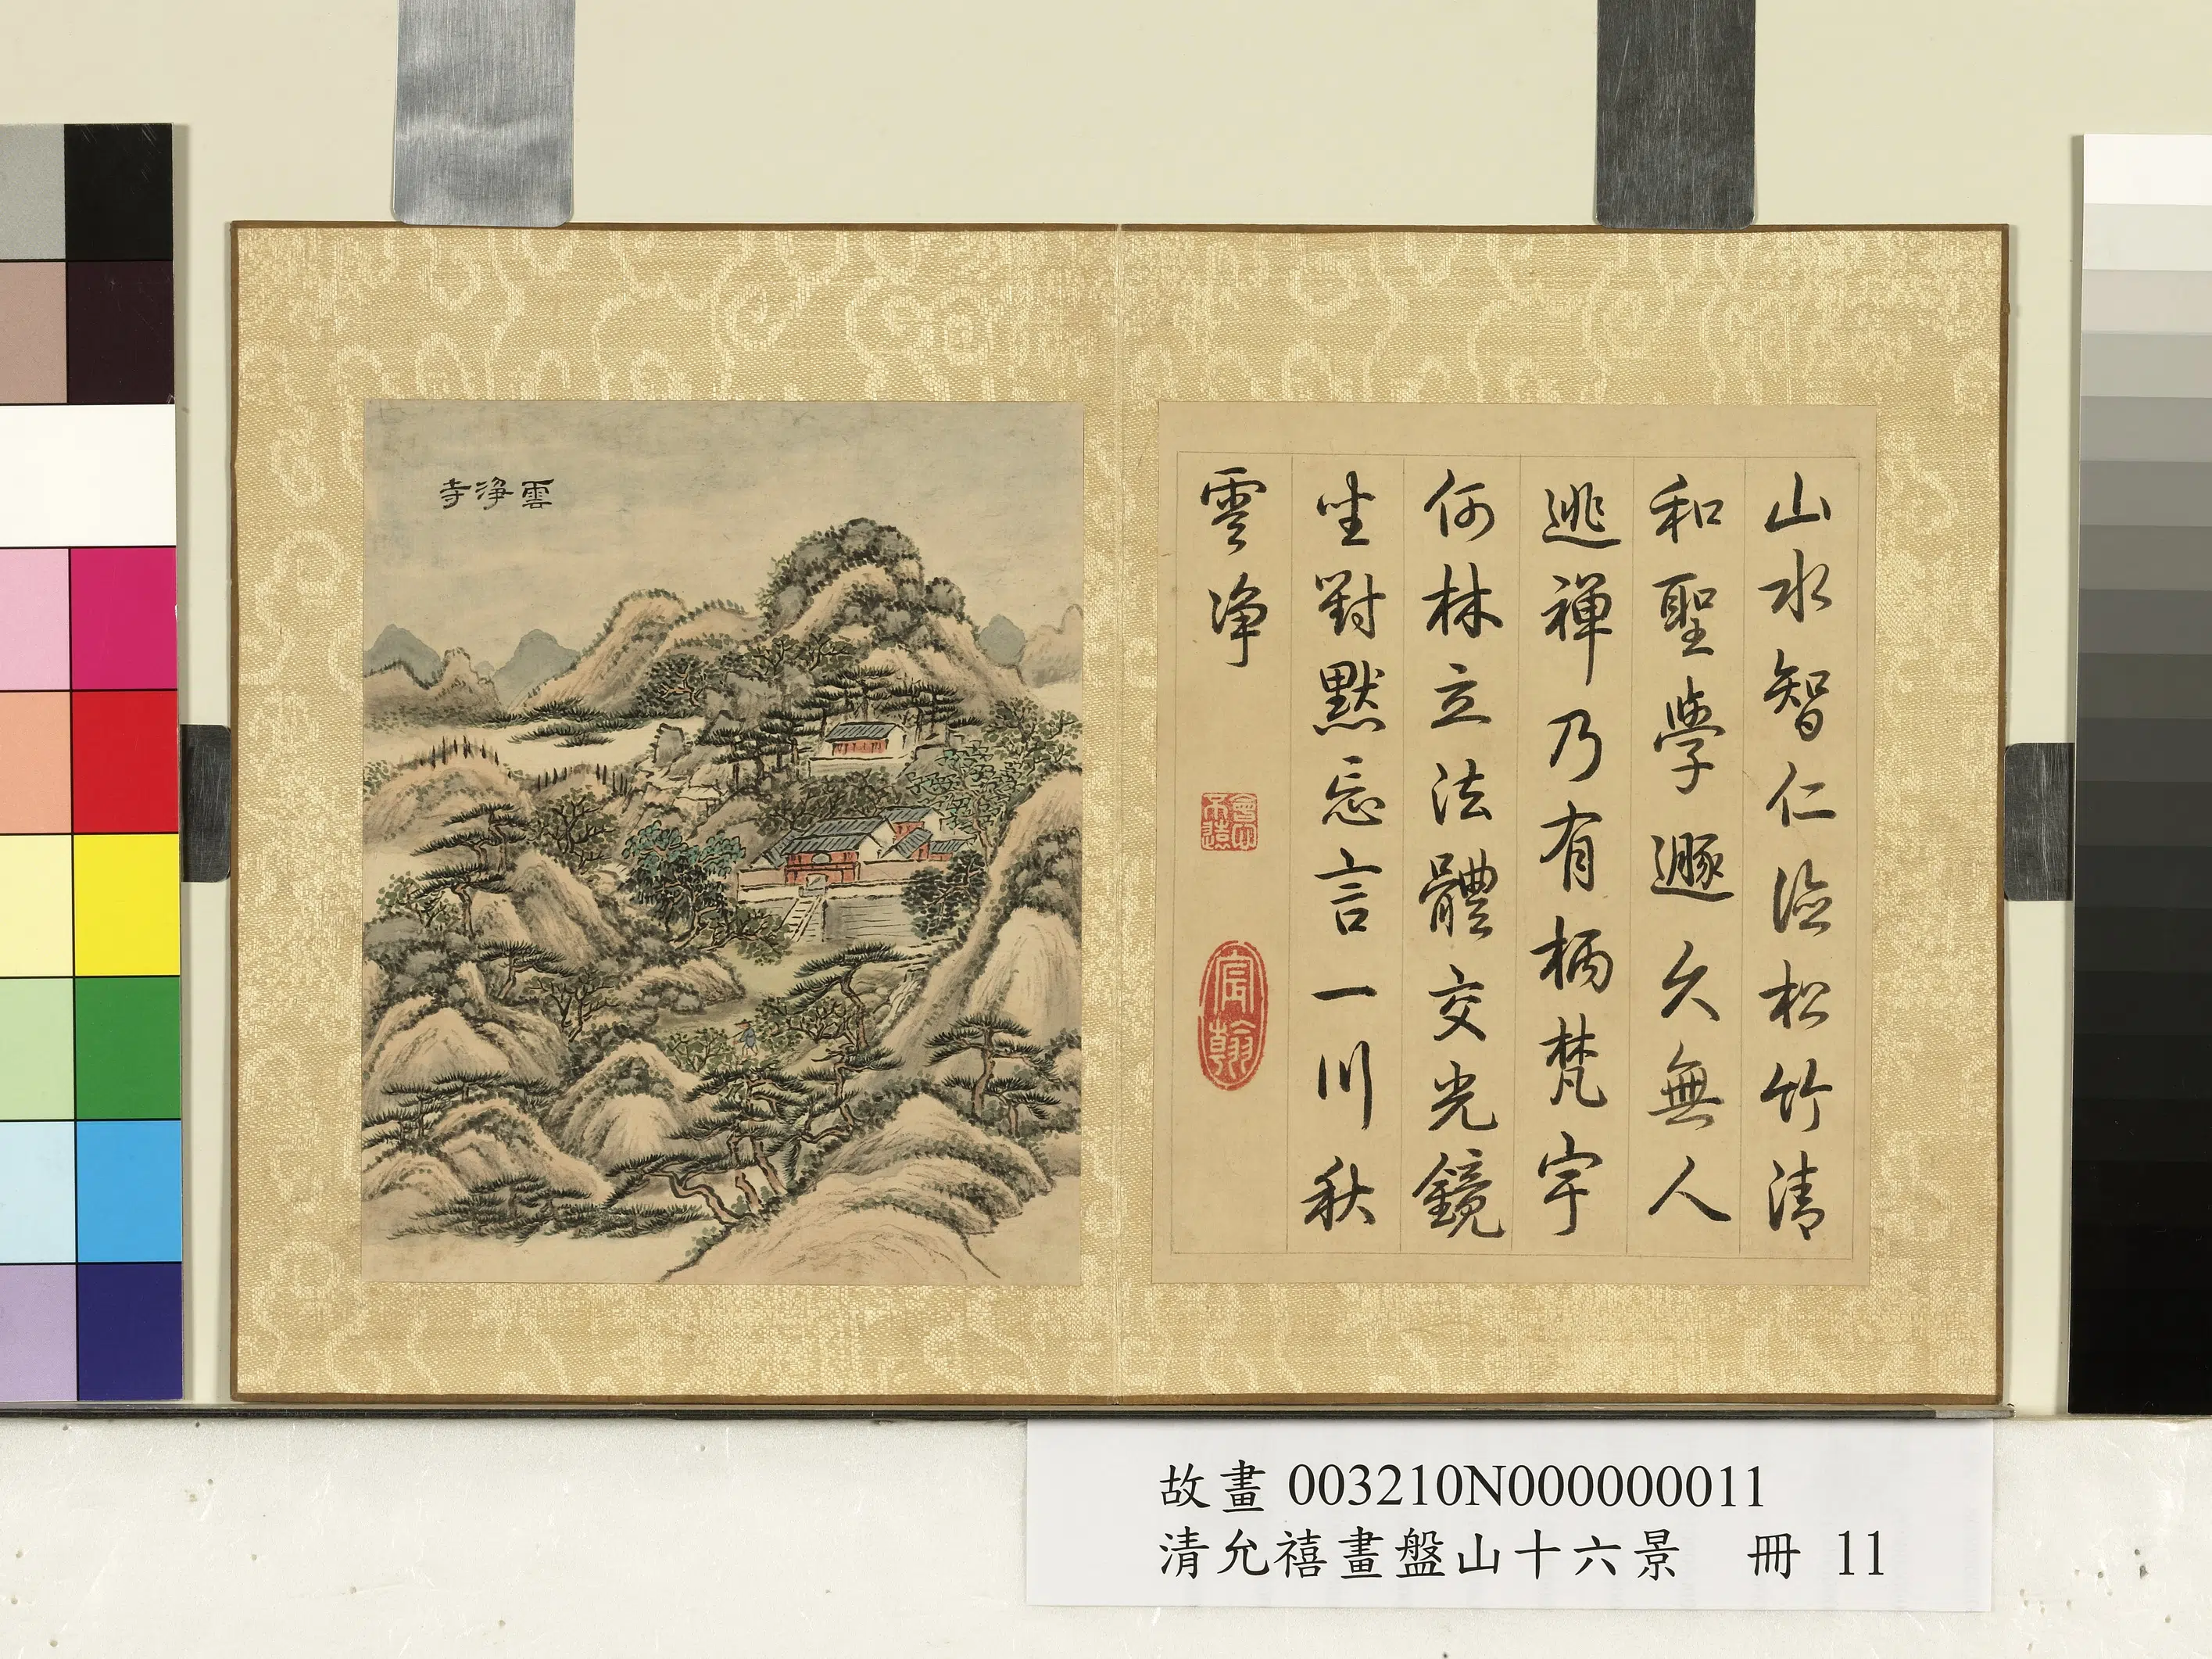 山水智仁德松竹清
和聖學遯久無人
逃禪乃有柄梵宇
何林立法體交光鏡
坐對默忘言一川秋
雲淨
會心不遠
宸翰
雲淨寺
故畫 003210N000000011
清允禧畫盤山十六景 冊 11